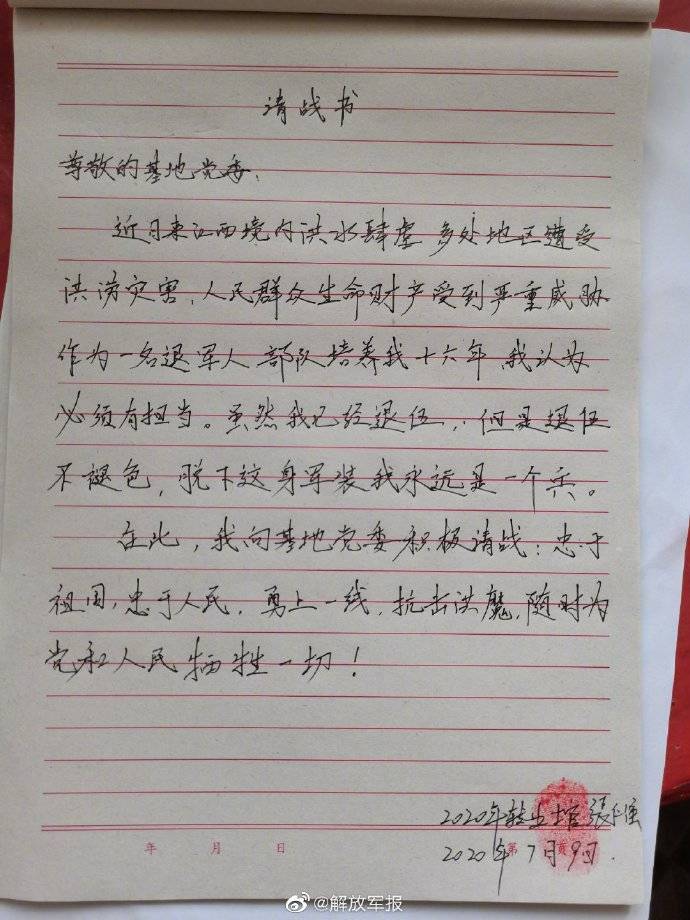 请战书
尊敬的基地党委:
近日来江西境内洪水肆虐 多处地区遭受
洪涝灾害,人民群众生命财产受到严重威胁
作为一名退军人 部队培养我十六年,我认为
必须有担当。虽然我已经退伍,但是退伍
不褪色,脱下这身军装我永远是一个兵。
在此,我向基地党委积极请战:忠于
祖国,忠于人民,勇上一线,抗击洪魔,随时为
党和人民牺牲一切!
2020年转业士官 张
年 月 日 第 页
2020年7月9日.
@解放军报